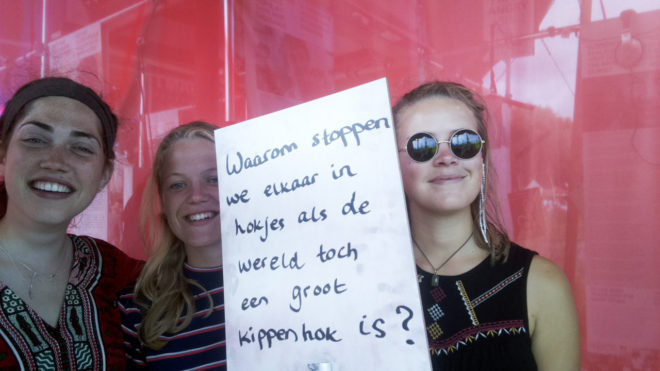 Waarom stoppen
we elkaar in
hokjes als de
wereld toch
een groot
kippenhok is?